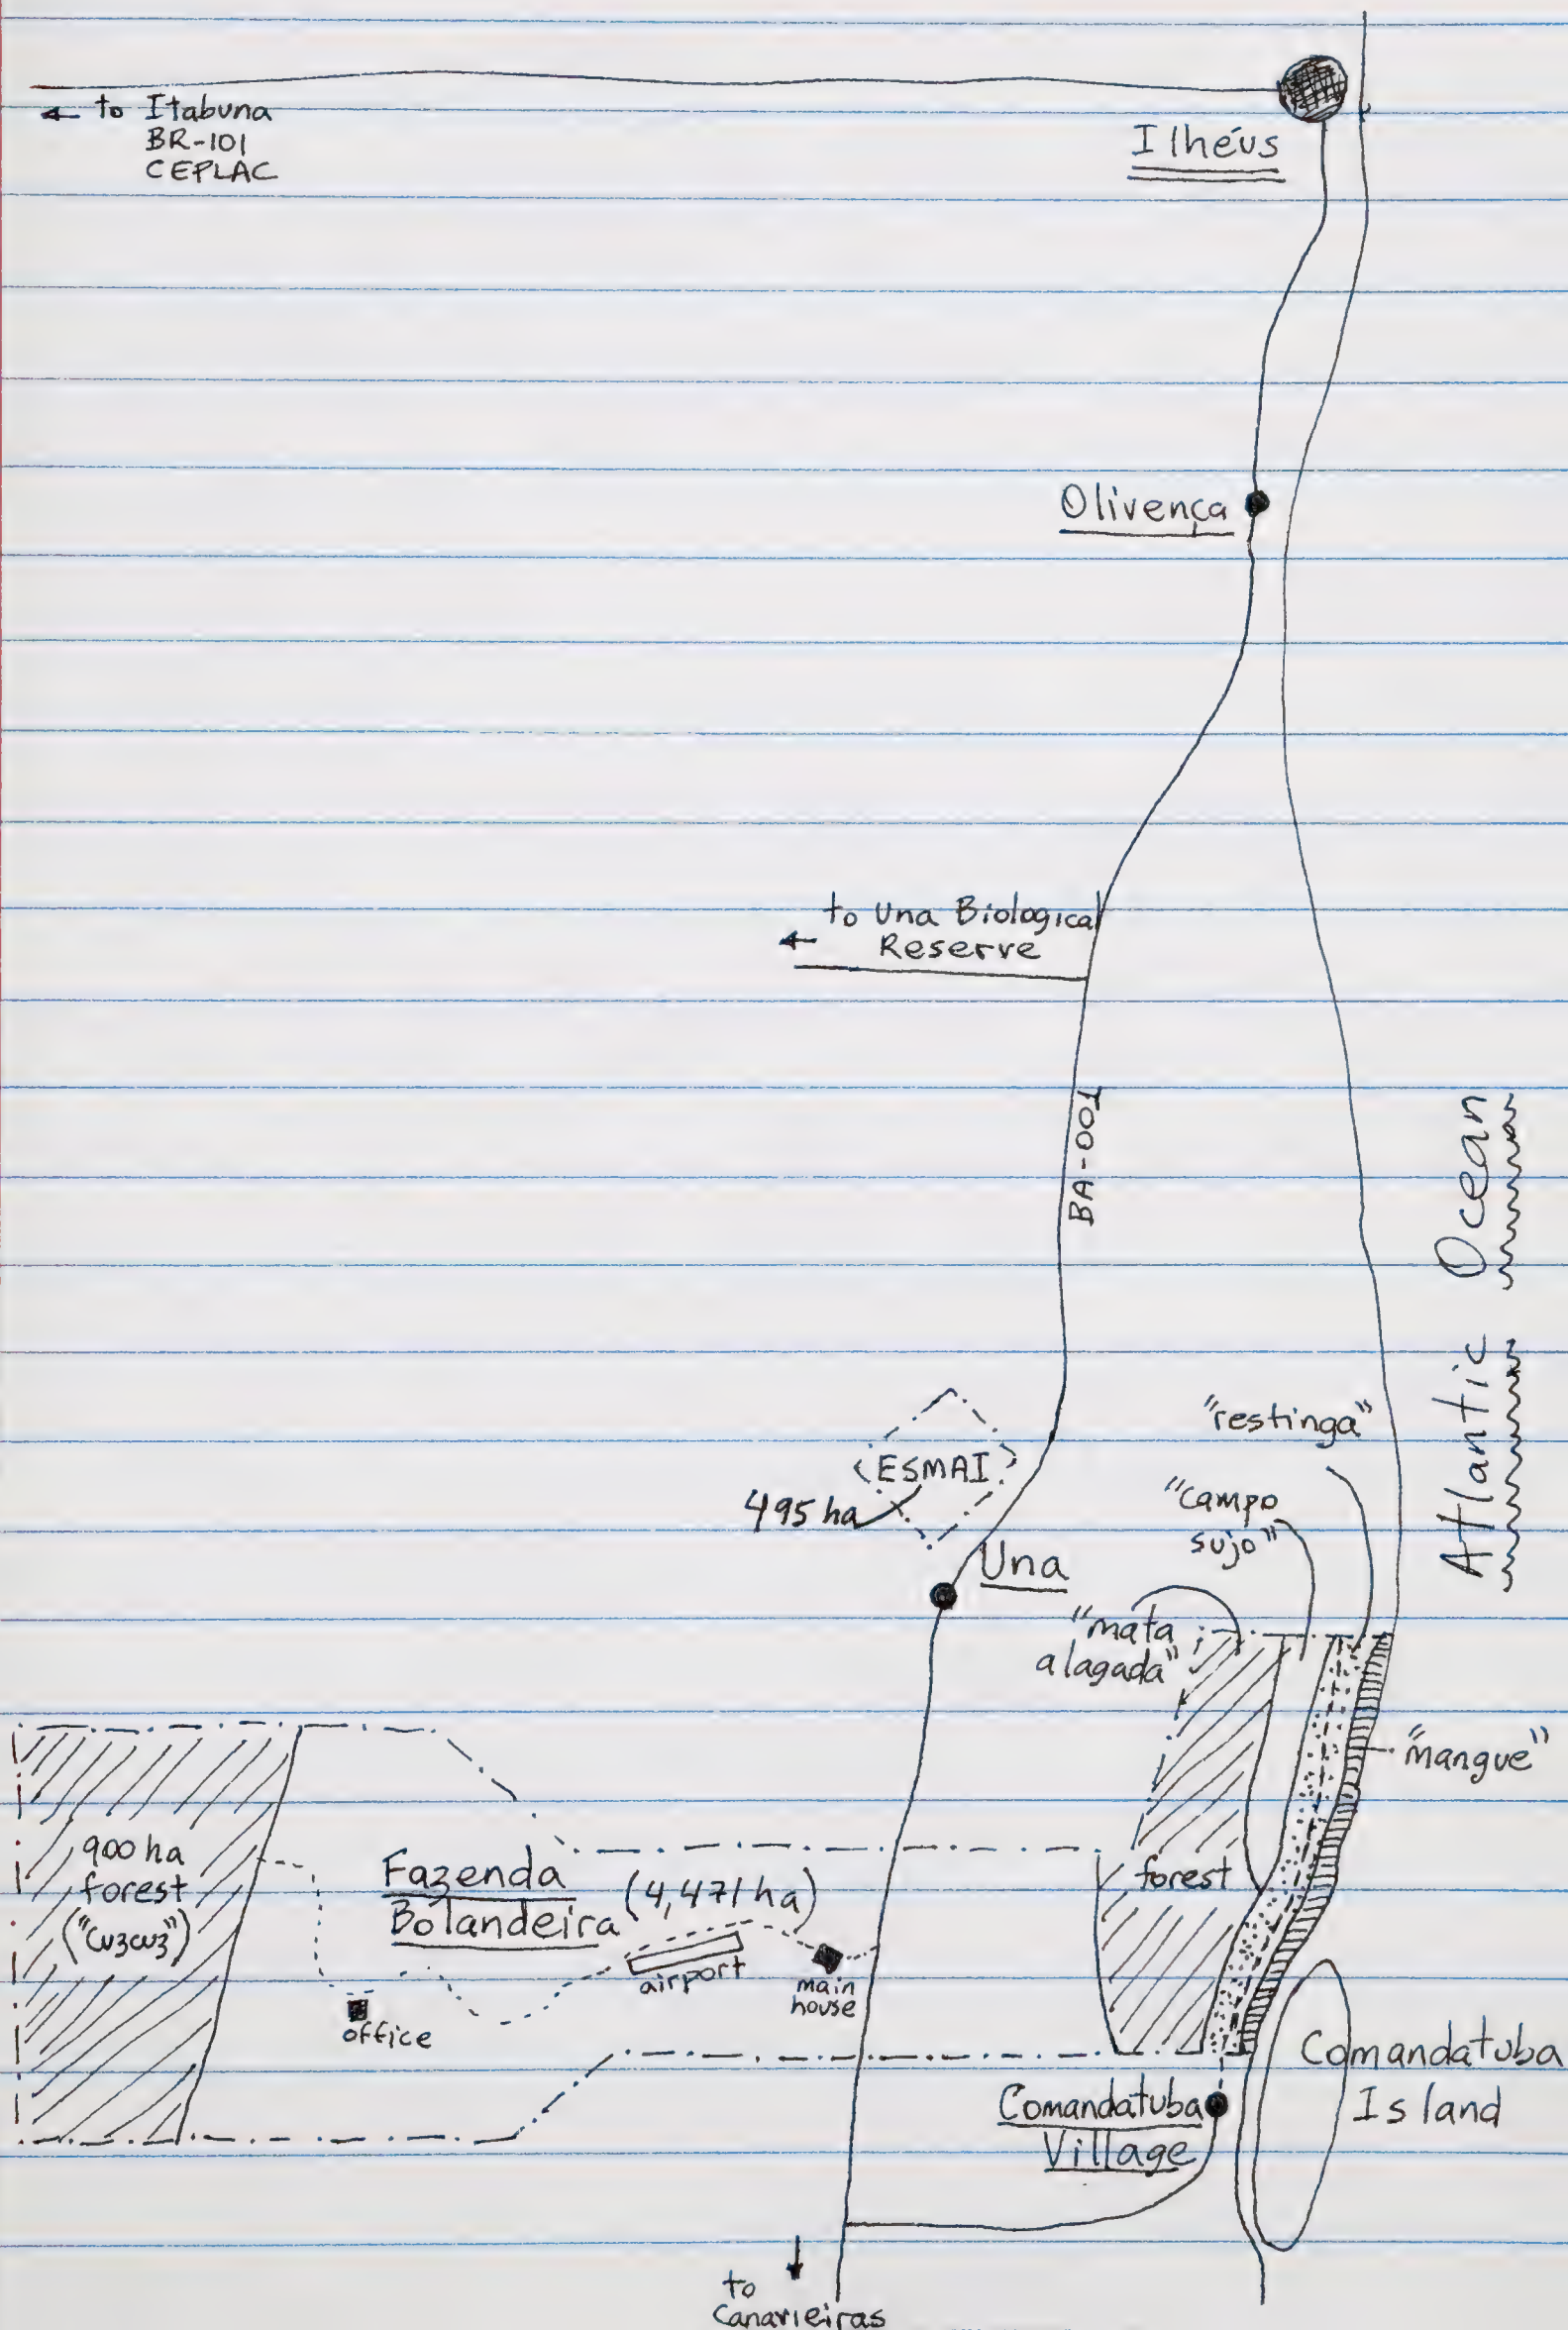 ← to Itabuna
BR-101
CEPLAC
Ilhéus
Olivença
to Una Biological
← Reserve
BA-001
Atlantic Ocean
"restinga"
(ESMAI)
495 ha
"campo
sujo"
Una
"mata
alagada"
"mangue"
900 ha
forest
("cuzcuz")
Fazenda
Bolandeira (4,471 ha)
forest
airport
main
house
office
Comandatuba
Island
Comandatuba
Village
to
Canavieiras